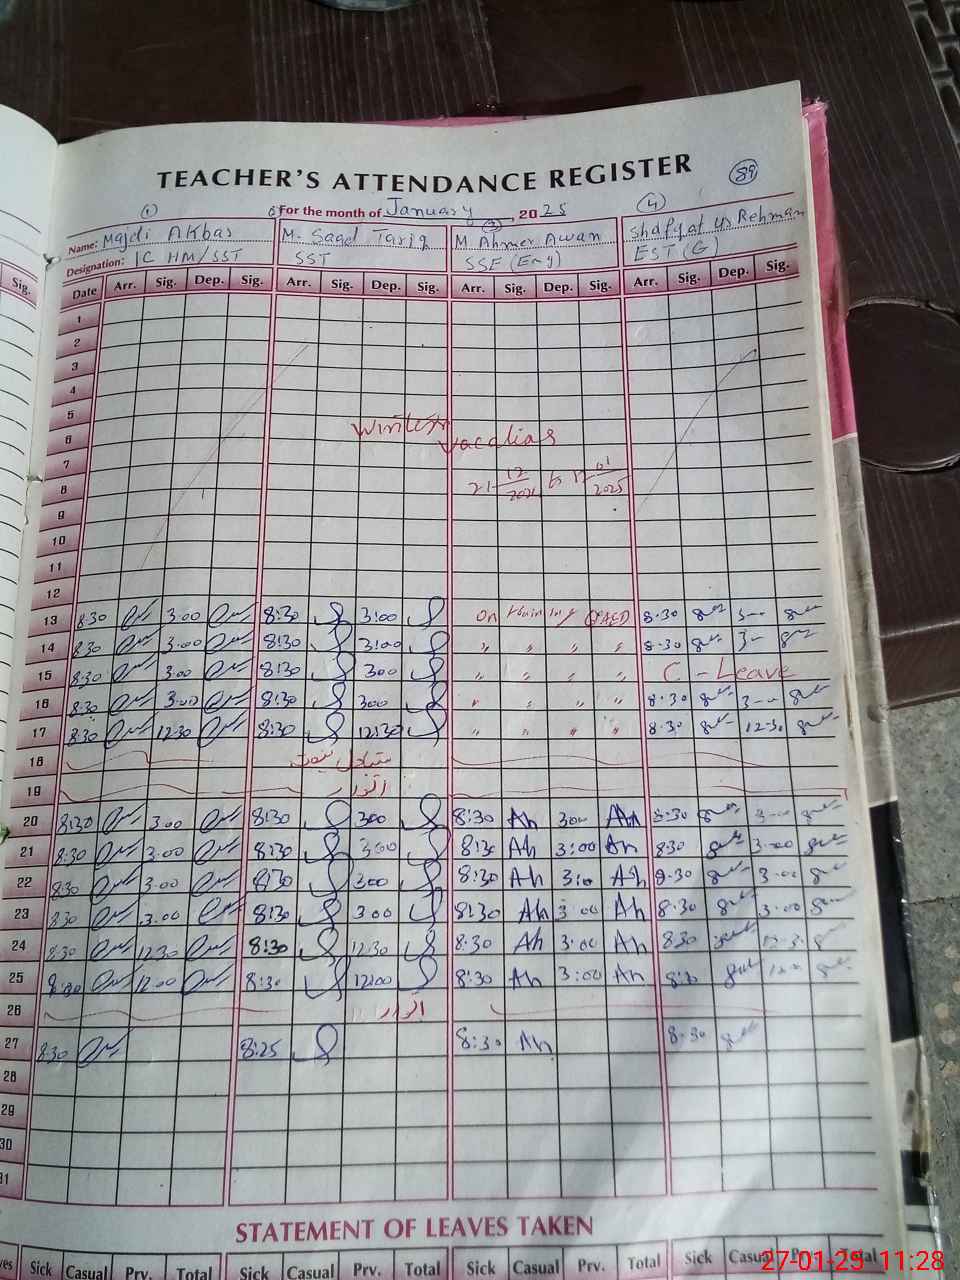 TEACHER'S ATTENDANCE REGISTER 89
For the month of January, 2025
1 3 4
Name: Majdi Akbar M. Saad Tariq M Ahmer Awan Shafqat ur Rehman
Designation: IC HM/SST SST SSE (Eng) EST (G)
Sig. Date Arr. Sig. Dep. Sig. Arr. Sig. Dep. Sig. Arr. Sig. Dep. Sig. Arr. Sig. Dep. Sig.
1
2
3
4
5
6 Winter Vacatias
7
8 21-12/2024 to 12 01/2025
9
10
11
12
13 8:30 3:00 8:30 3:00 On QAED 8:30 3-
14 8:30 3:00 8:30 3:00 " " " " 8:30 3-
15 8:30 3:00 8:30 300 " " " " C - Leave
16 8:30 3:00 8:30 300 " " " " 8:30 3-
17 8:30 12:30 8:30 12:30 " " " " 8:30 12-30
18
19 اتوار
20 8:30 3:00 8:30 300 8:30 Ah 300 Ah 8:30 3-
21 8:30 3:00 8:30 300 8:30 Ah 3:00 Ah 8:30 3-00
22 8:30 3:00 8:30 300 8:30 Ah 3:0 Ah 8:30 3-00
23 8:30 3:00 8:30 300 8:30 Ah 3:00 Ah 8:30 3:00
24 8:30 12:30 8:30 12:30 8:30 Ah 3:00 Ah 8:30 12-30
25 8:30 12:00 8:30 12:00 8:30 Ah 3:00 Ah 8:30
26 اتوار
27 8:30 8:25 8:30 Ah 8:30
28
29
30
31
STATEMENT OF LEAVES TAKEN
Sick Casual Prv. Total Sick Casual Prv. Total Sick Casual Prv. Total Sick Casual Prv. Total
27-01-25 11:28